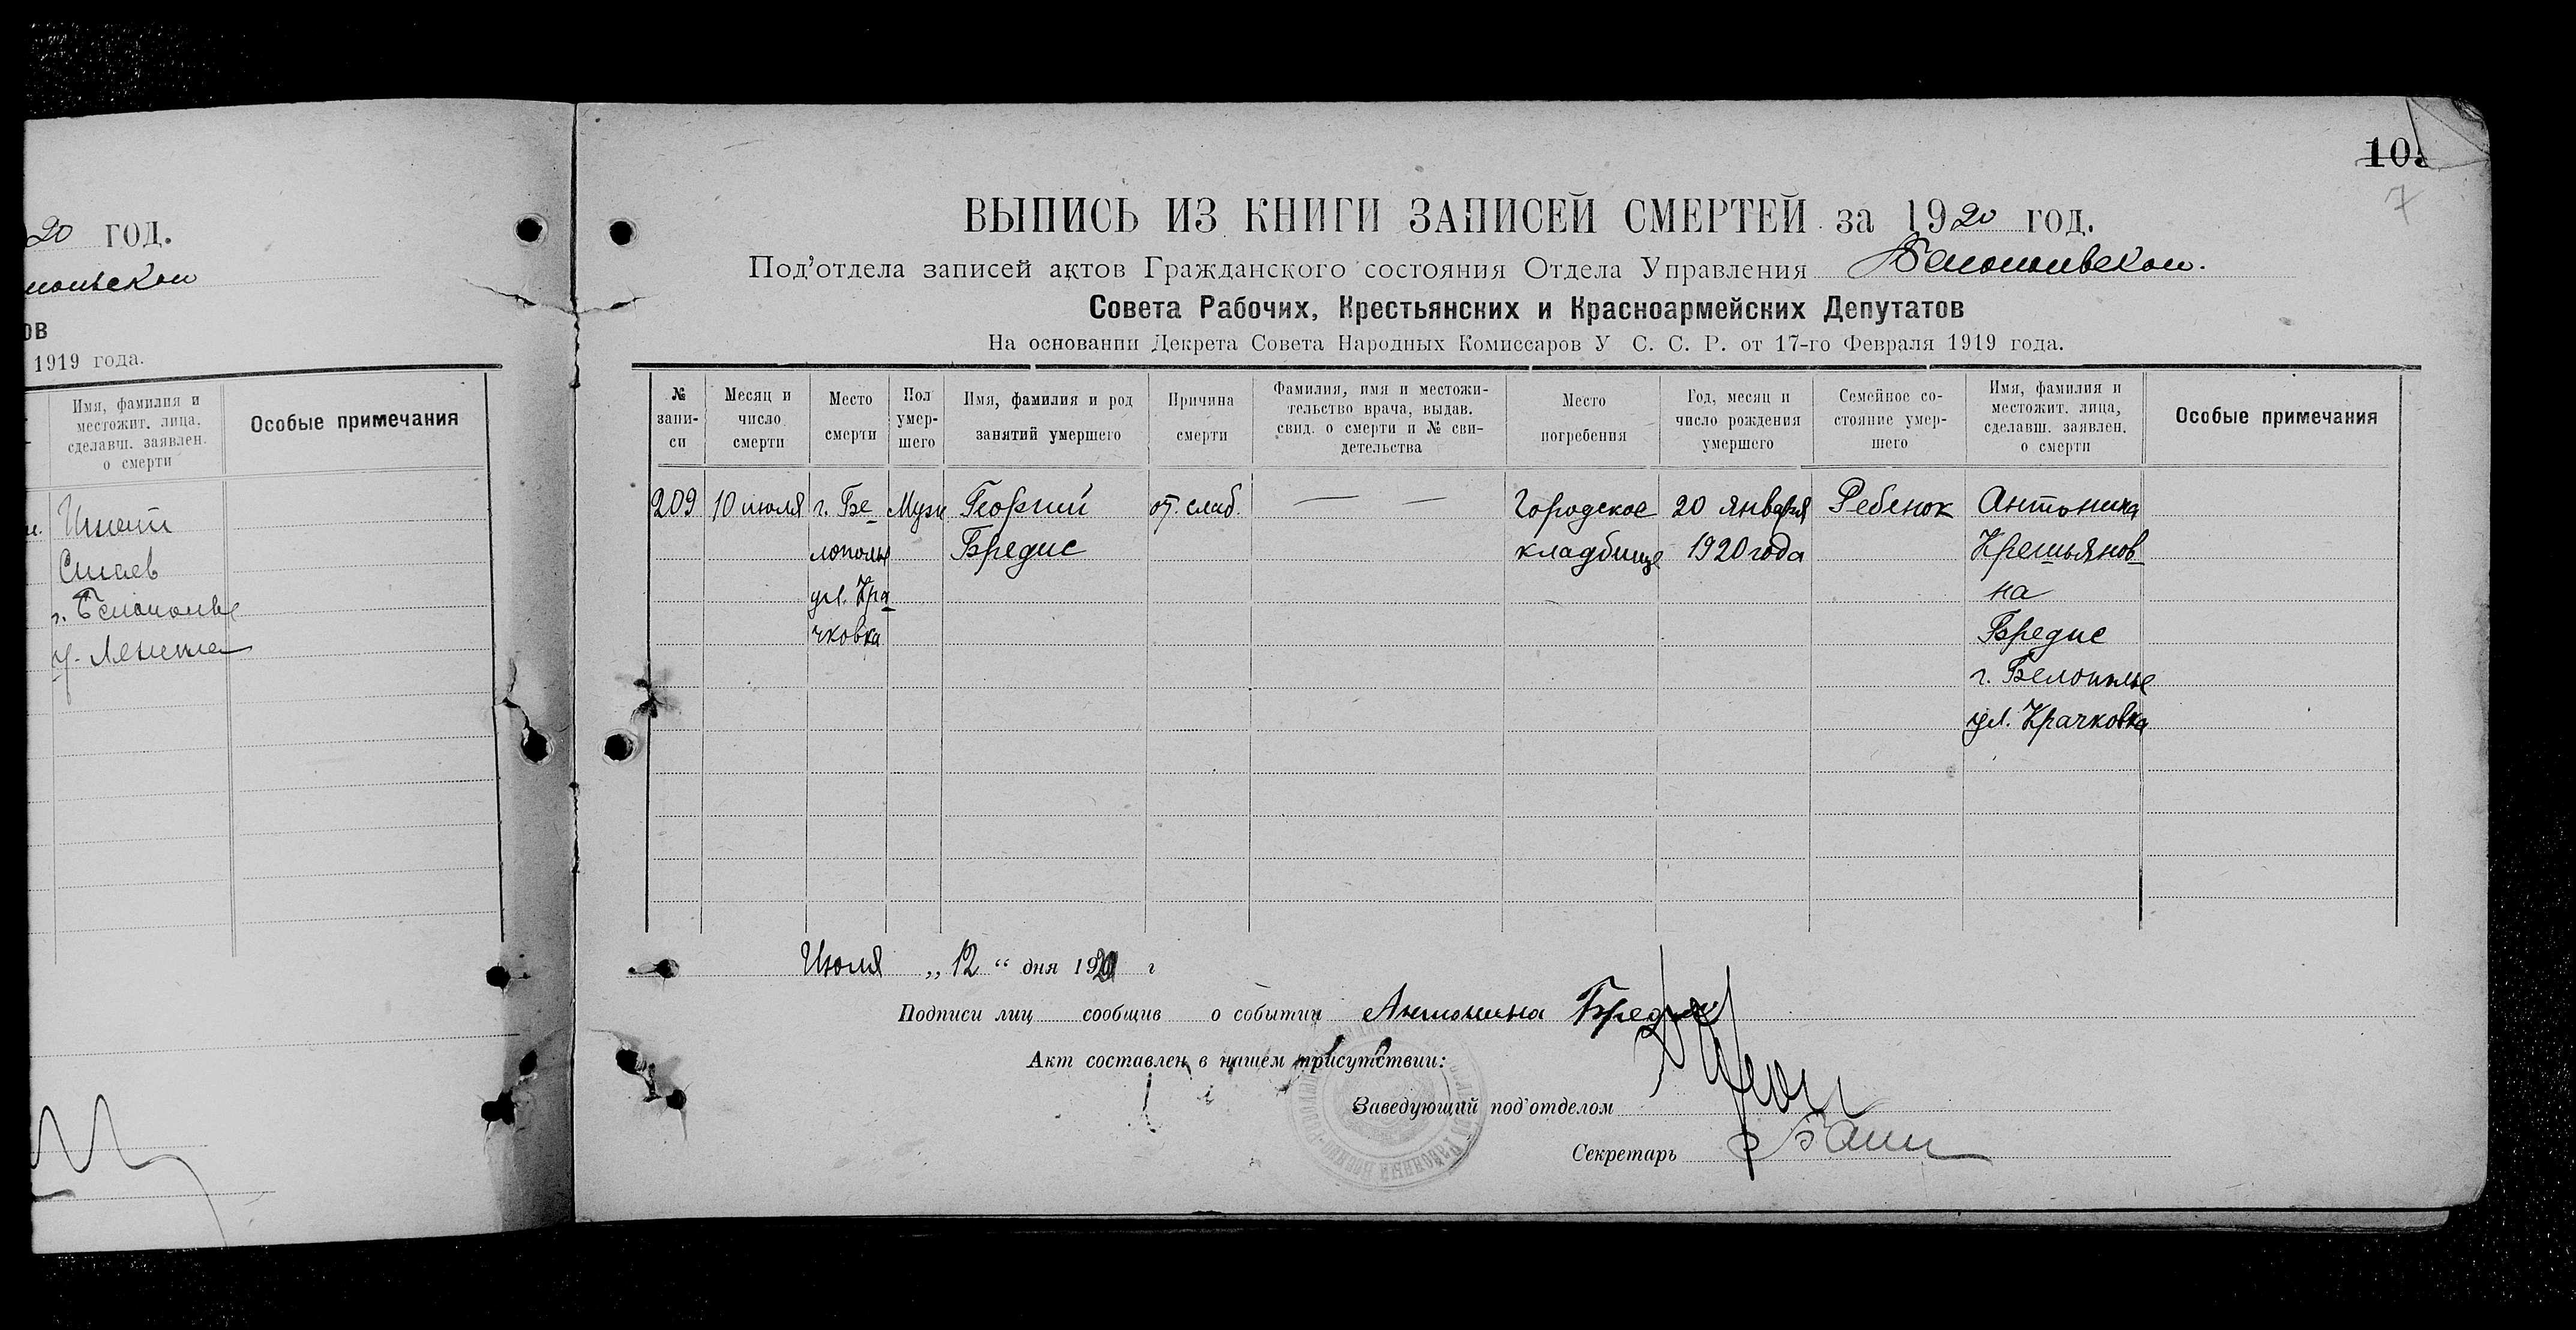 20 год.
ов
1919 года.
Имя, фамилия и
местожит. лица,
сделавш. заявлен.
о смерти
Особые примечания
г. Белополье
103
7
ВЫПИСЬ ИЗ КНИГИ ЗАПИСЕЙ СМЕРТЕЙ за 1920 год.
Под'отдела записей актов Гражданского состояния Отдела Управления Белопольской.
Совета Рабочих, Крестьянских и Красноармейских Депутатов
На основании Декрета Совета Народных Комиссаров У С. С. Р. от 17-го Февраля 1919 года.
№
запи-
си
Месяц и
число
смерти
Место
смерти
Пол
умер-
шего
Имя, фамилия и род
занятий умершего
Причина
смерти
Фамилия, имя и местожи-
тельство врача, выдав.
свид. о смерти и № сви-
детельства
Место
погребения
Год, месяц и
число рождения
умершего
Семейное со-
стояние умер-
шего
Имя, фамилия и
местожит. лица,
сделавш. заявлен.
о смерти
Особые примечания
209
10 июля
г. Бе-
лополье
ул. Кра-
чковка
Муж
Георгий
Бредис
от слаб.
— —
Городское
кладбище
20 января
1920 года
Ребенок
Антонина
Крестьянов-
на
Бредис
г. Белополье
ул. Крачковка
Июля „ 12 “ дня 1920 г
Подписи лиц сообщив о событии Антонина Бредис
Акт составлен в нашем присутствии:
Заведующий под'отделом
Секретарь